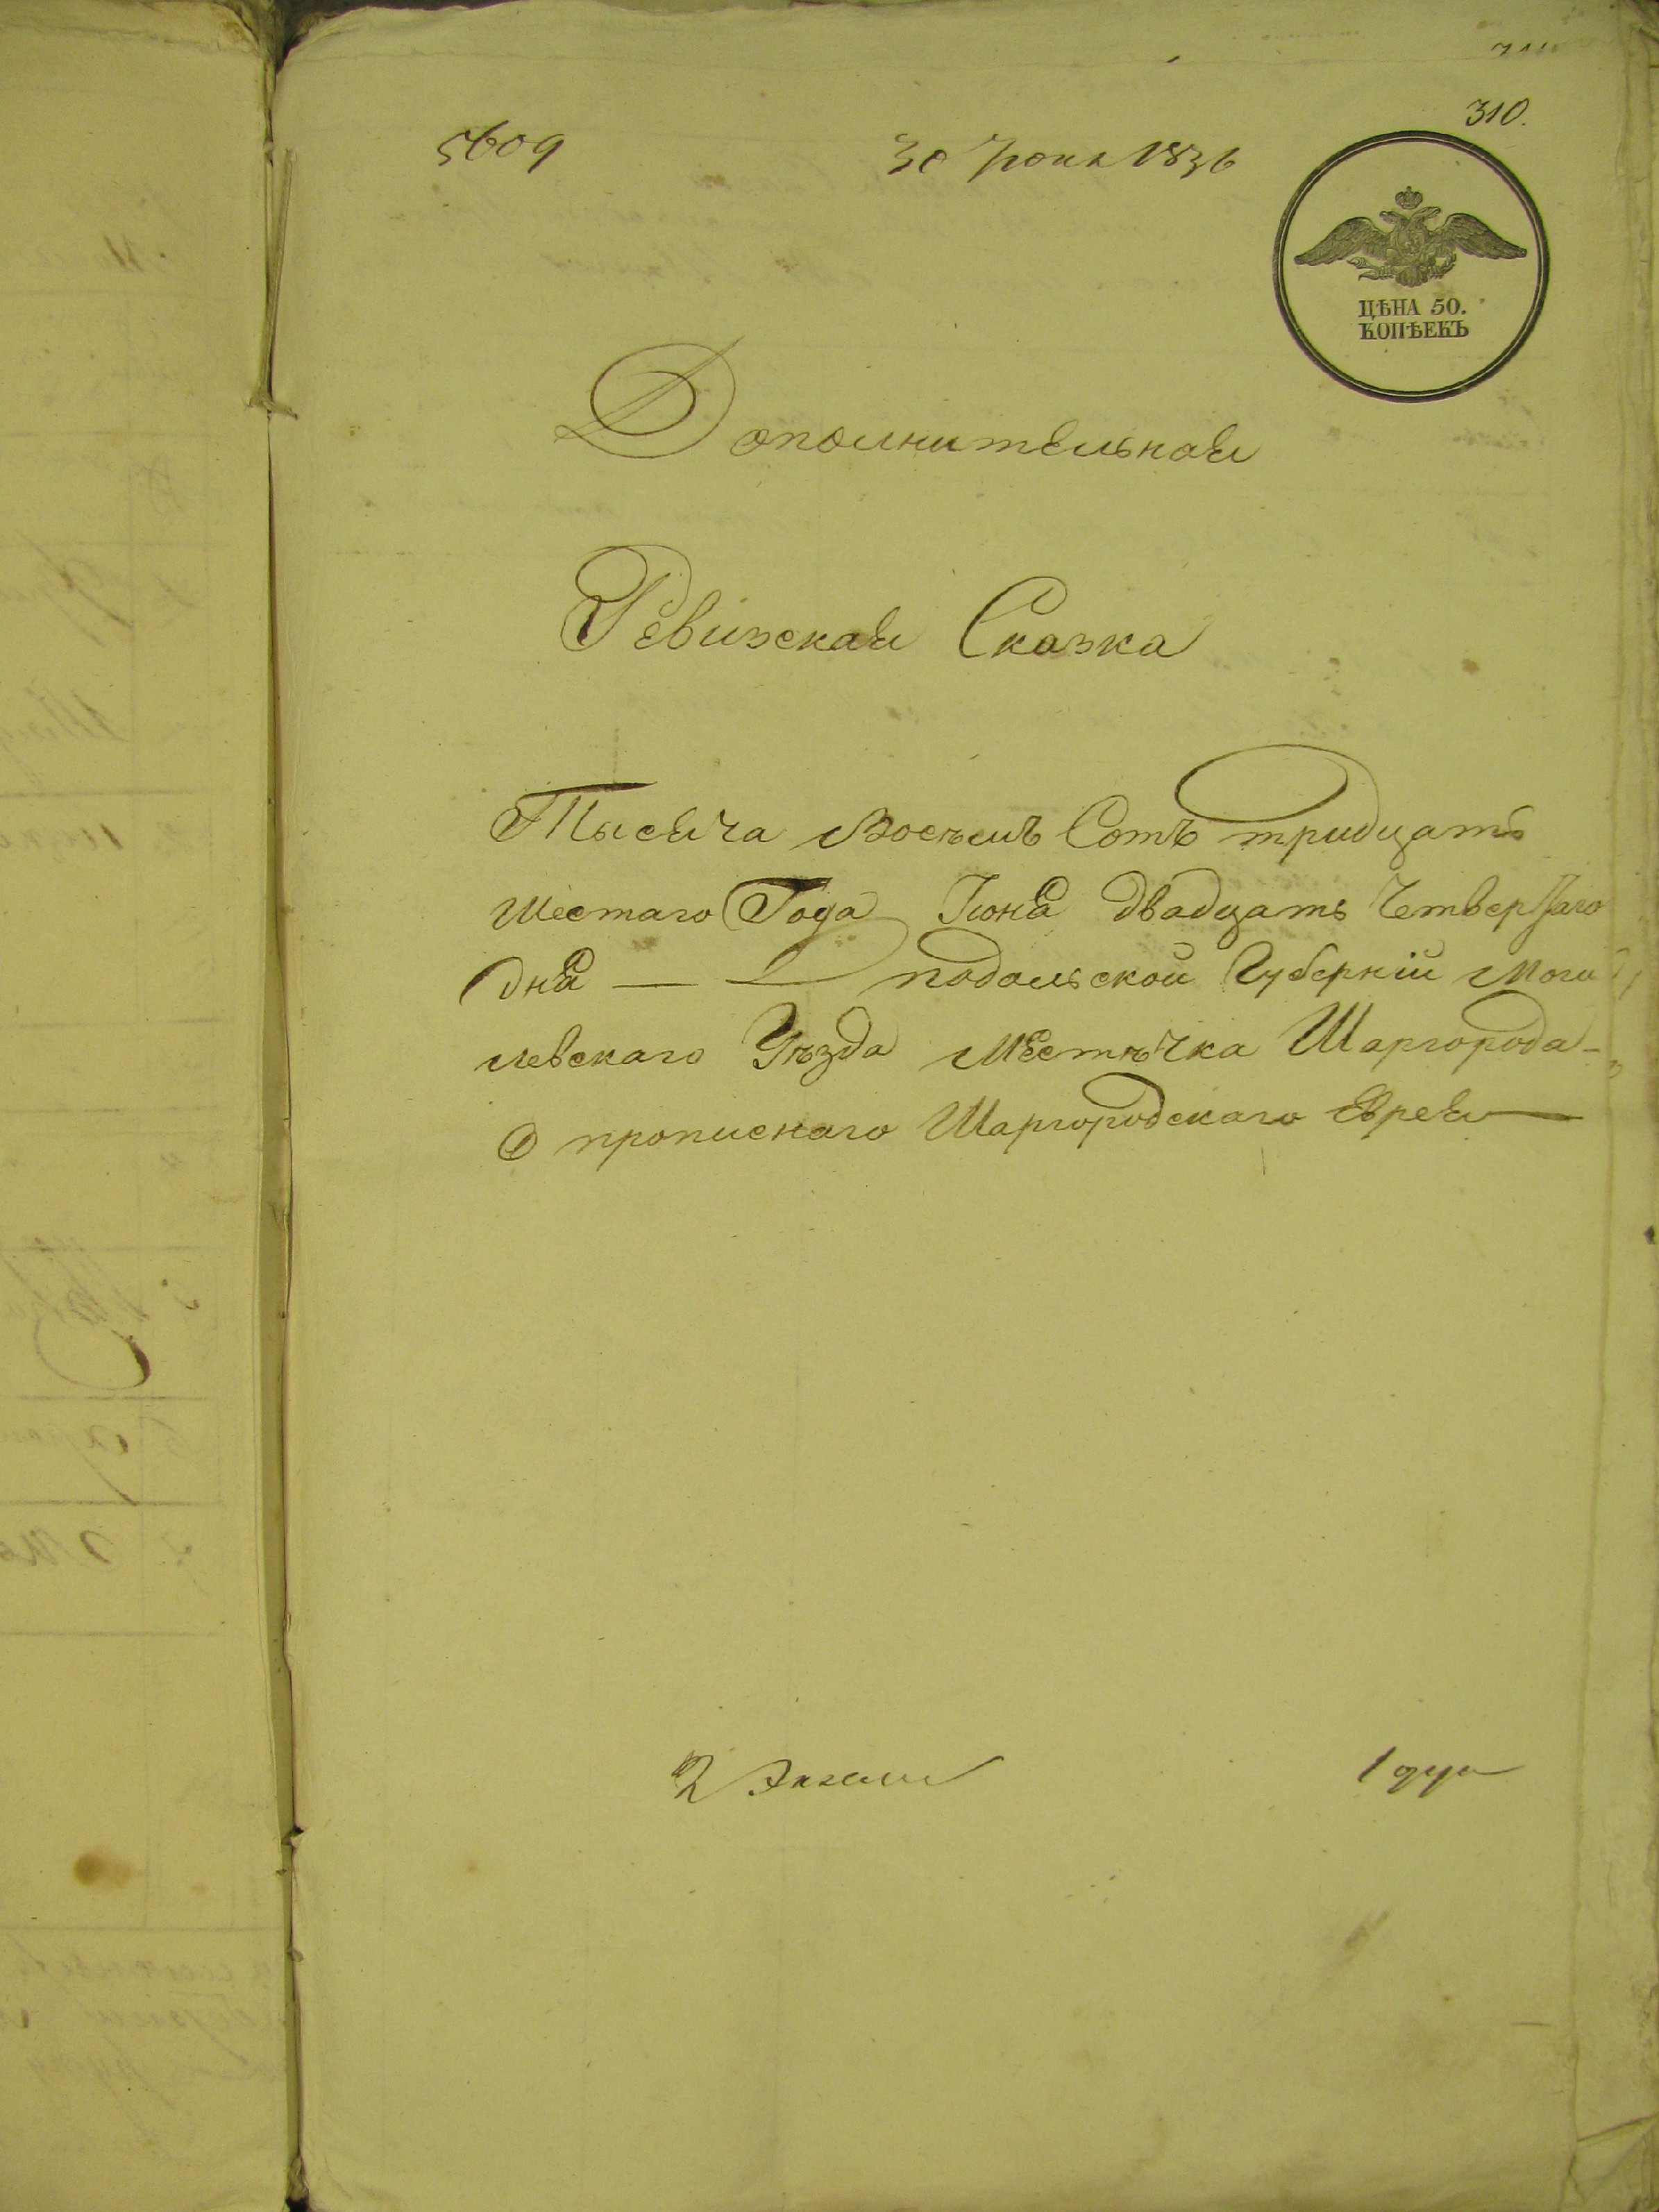 310.
5609 30 Іюня 1836
ЦѢНА 50.
КОПѢЕКЪ
Дополнительная
Ревизская Сказка
Тысяча Восемь Сотъ тридцать
шестаго Года Іюня двадцать Четвертаго
дня — подольской Губерніи Моги
левскаго Уѣзда Местѣчка Шаргорода -
О прописнаго Шаргородскаго Еврея —
2 1 душ